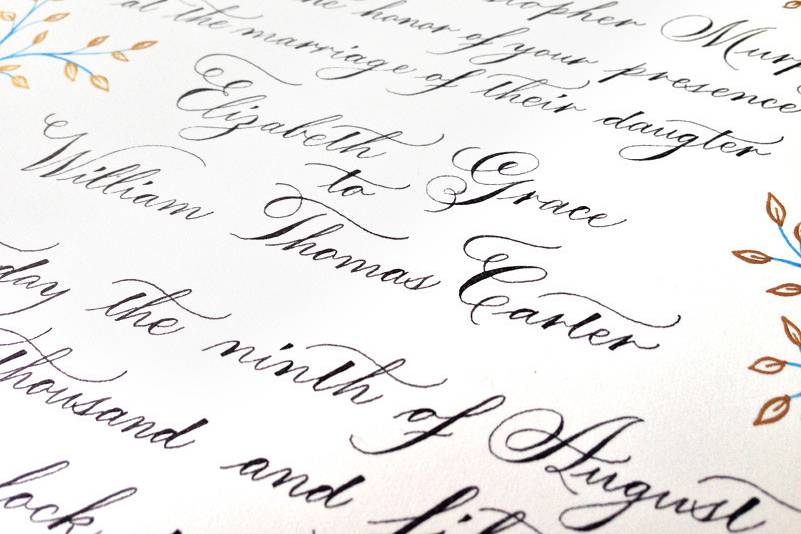 stopher Murp
the honor of your presence
at the marriage of their daugter
Elizabeth Grace
to
William Thomas Carter
day the ninth of August
thousand and
lock